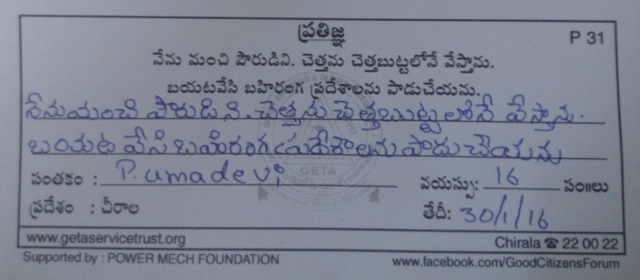 ప్రతిజ్ఞ P 31
నేను మంచి పౌరుడిని. చెత్తను చెత్తబుట్టలోనే వేస్తాను.
బయటవేసి బహిరంగ ప్రదేశాలను పాడుచేయను.
నేను మంచి పౌరుడిని. చెత్తను చెత్తబుట్టలోనే వేస్తాను.
బయట వేసి బహిరంగ ప్రదేశాలను పాడు చేయను
సంతకం : P. umadevi వయస్సు: 16 సం॥లు
ప్రదేశం : చీరాల తేదీ: 30/1/16
www.getaservicetrust.org Chirala ☎ 22 00 22
Supported by : POWER MECH FOUNDATION www.facebook.com/GoodCitizensForum
GETA